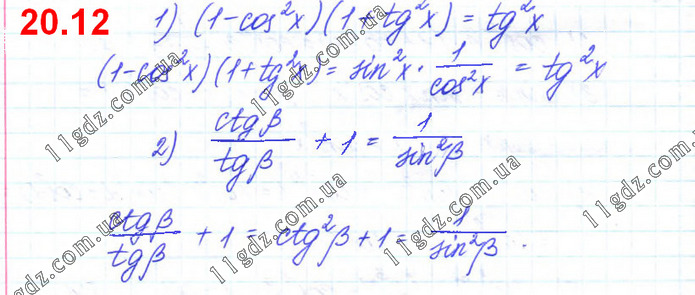 20.12
1) (1-cos²x)(1+tg²x) = tg²x
(1-cos²x)(1+tg²x) = sin²x · 1/cos²x = tg²x
2) ctgβ/tgβ + 1 = 1/sin²β
ctgβ/tgβ + 1 = ctg²β + 1 = 1/sin²β.
11gdz.com.ua
11gdz.com.ua
11gdz.com.ua
11gdz.com.ua
11gdz.com.ua
11gdz.com.ua